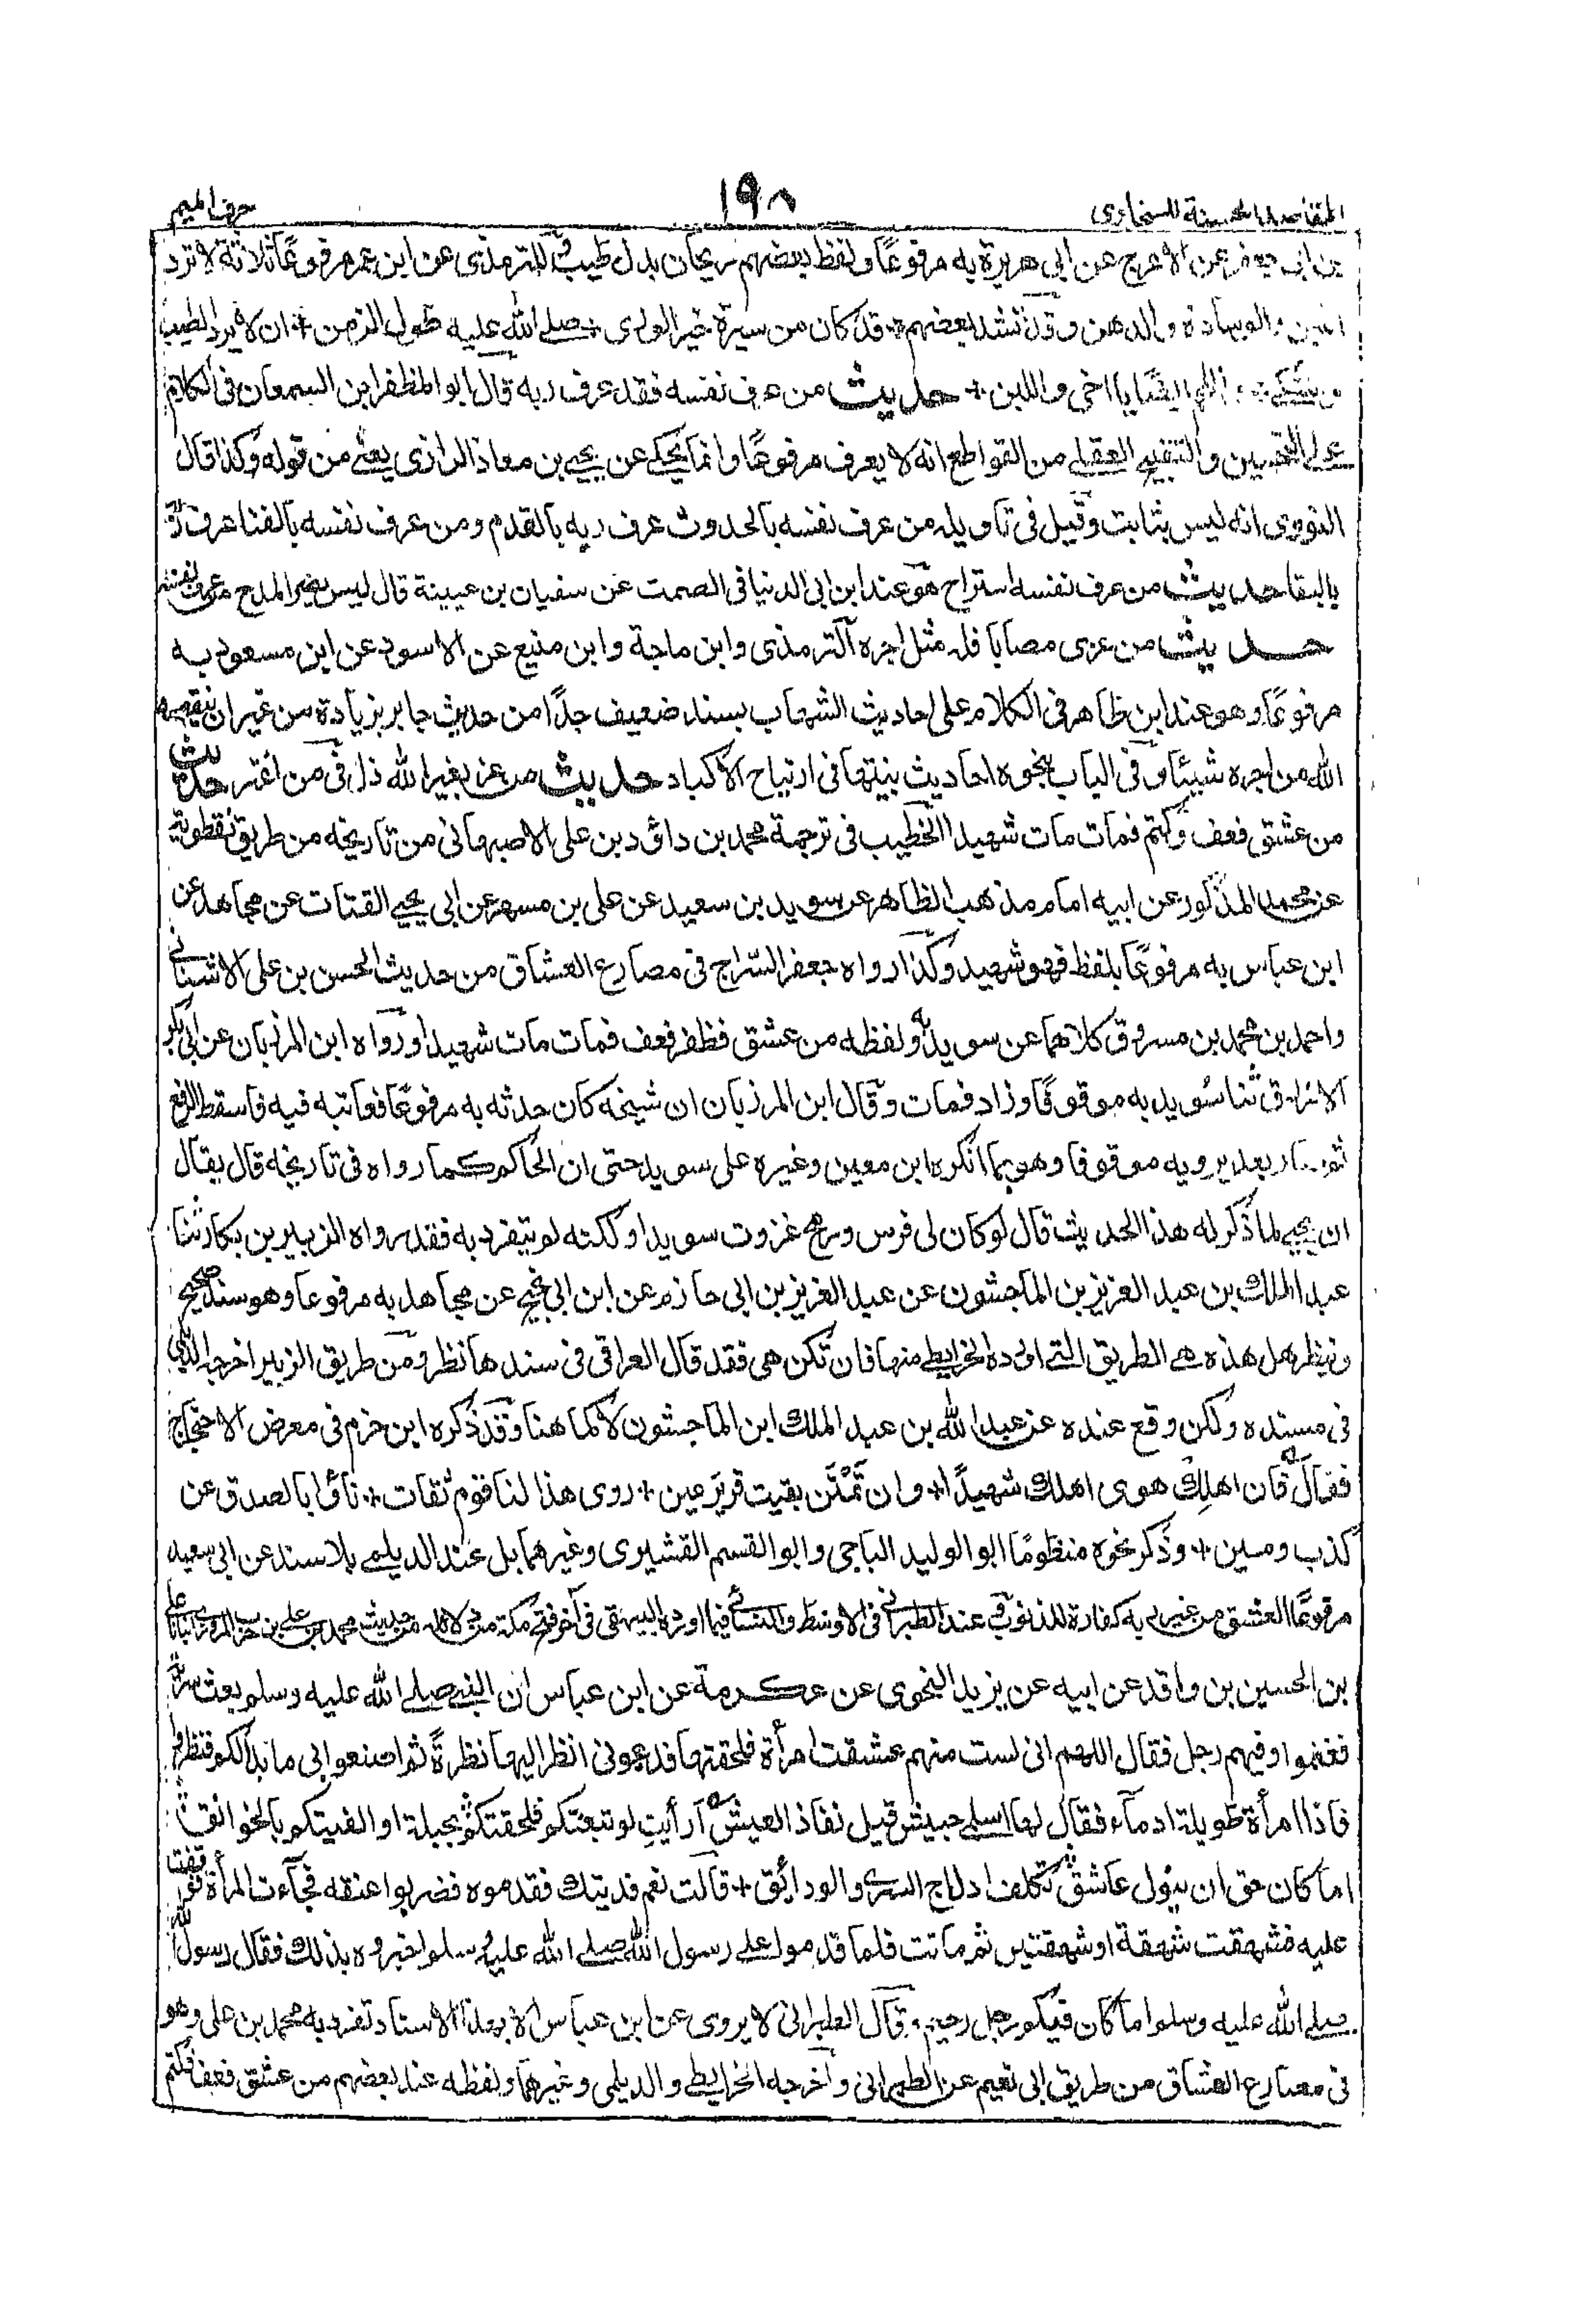 المقاصد الحسنة للسخاوى ١٩٨ حرف الميم
بن ابى جعفر عن الاعرج عن ابى هريرة به مرفوعًا ولفظ بعضهم ريحان بدل طيب وللترمذى عن ابن عمر مرفوعًا ثلاثة لا ترد
اللبن والوسادة والدهن وقد نشد بعضهم + قد كان من سيرة خير الورى + صلے الله عليه طول الزمن + ان لا يرد الطيب
ايضًا يا اخى واللبن + حديث من عرف نفسه فقد عرف ربه قال ابو المظفر ابن السمعان فى الكلام
على التحسين والتقبيح العقلے من القواطع انه لا يعرف مرفوعًا وانما يحكے عن يحيے بن معاذ الرازى يعنے من قوله وكذا قال
النووى انه ليس بثابت وقيل فى تاويله من عرف نفسه بالحدوث عرف ربه بالقدم ومن عرف نفسه بالفنا عرف ربه
بالبقا حديث من عرف نفسه استراح هو عند ابن ابى الدنيا فى الصمت عن سفيان بن عيينة قال ليس يضر المدح من عرف نفسه
حديث من عزى مصابا فله مثل اجره الترمذى وابن ماجة وابن منيع عن الاسود عن ابن مسعود به
مرفوعًا وهو عند ابن طاهر فى الكلام على احاديث الشهاب بسند ضعيف جدًا من حديث جابر بزيادة من غير ان ينقصه
الله من اجره شيئا وفى الباب نحوه احاديث بينتها فى ارتياح الاكباد حديث من عز بغير الله ذل فى من اغتر حديث
من عشق فعف وكتم فمات مات شهيدا الخطيب فى ترجمة محمد بن داؤد بن على الاصبهانى من تاريخه من طريق نفطويه
عن محمد المذكور عن ابيه امام مذهب الظاهر عن سويد بن سعيد عن على بن مسهر عن ابى يحيے القتات عن مجاهد عن
ابن عباس به مرفوعًا بلفظ فهو شهيد وكذا رواه جعفر السراج فى مصارع العشاق من حديث الحسن بن على الاشنانے
واحمد بن محمد بن مسروق كلاهما عن سويد به ولفظه من عشق فظفر فعف فمات مات شهيدا ورواه ابن المرزبان عن ابى بكر
الازرق ثنا سُويد به موقوفًا وزاد فمات وقال ابن المرزبان ان شيخه كان حدثه به مرفوعًا فعاتبه فيه فاسقط الرفع
ثم صار بعد يرويه موقوفا وهو مما انكره ابن معين وغيره على سويد حتى ان الحاكم كما رواه فى تاريخه قال يقال
ان يحيے لما ذكر له هذا الحديث قال لو كان لى فرس ورمح غزوت سويدا ولكنه لم يتفرد به فقد رواه الزبير بن بكار ثنا
عبد الملك بن عبد العزيز بن الماجشون عن عبد العزيز بن ابى حازم عن ابن ابى نجيح عن مجاهد به مرفوعا وهو سند صحيح
وينظر هل هذه هے الطريق التے اورده الخرايطے منها فان تكن هى فقد قال العراقى فى سندها نظر ومن طريق الزبير اخرجه الديلمى
فى مسنده ولكن وقع عنده عن عبد الله بن عبد الملك ابن الماجشون لا كما هنا وقد ذكره ابن حزم فى معرض الاحتجاج
فقال فان اهلك هوى اهلك شهيدًا + وان تمنن بقيت قرير عين + روى هذا لنا قوم ثقات + ناؤا بالصدق عن
كذب ومين + وذكر نحوه منظومًا ابو الوليد الباجى وابو القسم القشيرى وغيرهما بل عند الديلمے بلا سند عن ابى سعيد
مرفوعًا العشق من غير ريبه كفارة للذنوب وعند الطبرانے فى الاوسط والنسائے فيما اورده البيهقى فى آخر فتح مكة من دلائله من حديث محمد بن علے بن حرب المروزى انبانا علے
بن الحسين بن واقد عن ابيه عن يزيد النحوى عن عكرمة عن ابن عباس ان النبى صلے الله عليه وسلم بعث سرية
فغنموا وفيهم رجل فقال اللهم انى لست منهم عشقت امرأة فلحقتها فدعونى انظر اليها نظرةً ثم اصنعوا بى ما بدا لكم فنظروا
فاذا امرأة طويلة ادمآء فقال لها اسلمے حبيش قبل نفاذ العيش أرأيتِ لو تبعتكم فلحقتكم بجيلة او الفيتكم بالخوانق
اما كان حق ان ينول عاشق تكلف ادلاج السرى والودائق + قالت نعم فديتك فقدموه فضربوا عنقه فجآءت المرأة فوقفت
عليه فشهقت شهقة او شهقتين ثم ماتت فلما قدموا على رسول الله صلے الله عليه وسلم اخبروه بذلك فقال رسول الله
صلے الله عليه وسلم اما كان فيكم رجل رحيم قال الطبرانى لا يروى عن ابن عباس الا بهذا الاسناد تفرد به محمد بن على وهو
فى مصارع العشاق من طريق ابى نعيم عن الطبرانى وأخرجه الخرايطے والديلمى وغيرهما ولفظه عند بعضهم من عشق فعف فكتم